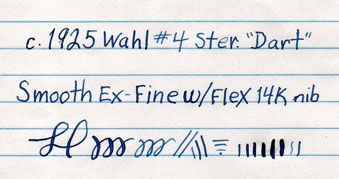 c. 1925 Wahl #4 Ster. "Dart"
Smooth Ex-Fine w/Flex 14K nib